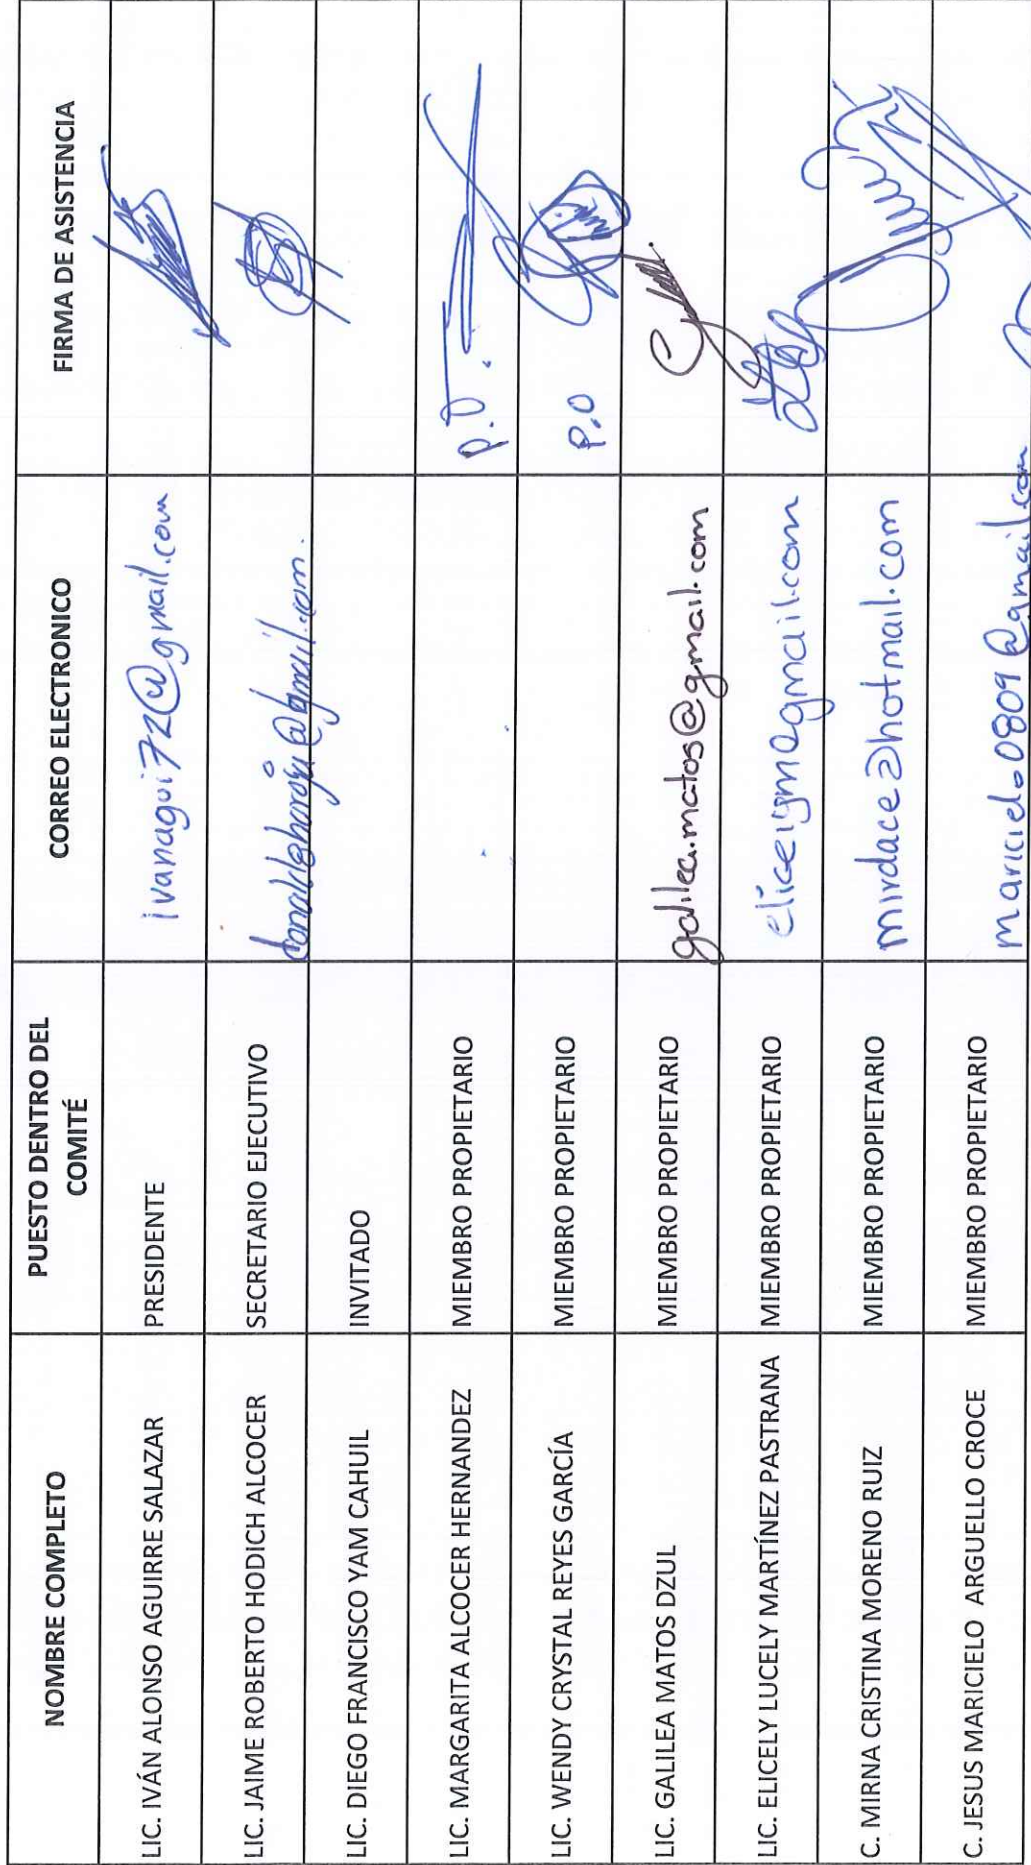 NOMBRE COMPLETO PUESTO DENTRO DEL COMITÉ CORREO ELECTRONICO FIRMA DE ASISTENCIA
LIC. IVÁN ALONSO AGUIRRE SALAZAR PRESIDENTE ivanagui72@gmail.com
LIC. JAIME ROBERTO HODICH ALCOCER SECRETARIO EJECUTIVO
LIC. DIEGO FRANCISCO YAM CAHUIL INVITADO
LIC. MARGARITA ALCOCER HERNANDEZ MIEMBRO PROPIETARIO P.O.
LIC. WENDY CRYSTAL REYES GARCÍA MIEMBRO PROPIETARIO P.O
LIC. GALILEA MATOS DZUL MIEMBRO PROPIETARIO galilea.matos@gmail.com
LIC. ELICELY LUCELY MARTÍNEZ PASTRANA MIEMBRO PROPIETARIO
C. MIRNA CRISTINA MORENO RUIZ MIEMBRO PROPIETARIO mirdace@hotmail.com
C. JESUS MARICIELO ARGUELLO CROCE MIEMBRO PROPIETARIO mariciel.0809@gmail.com